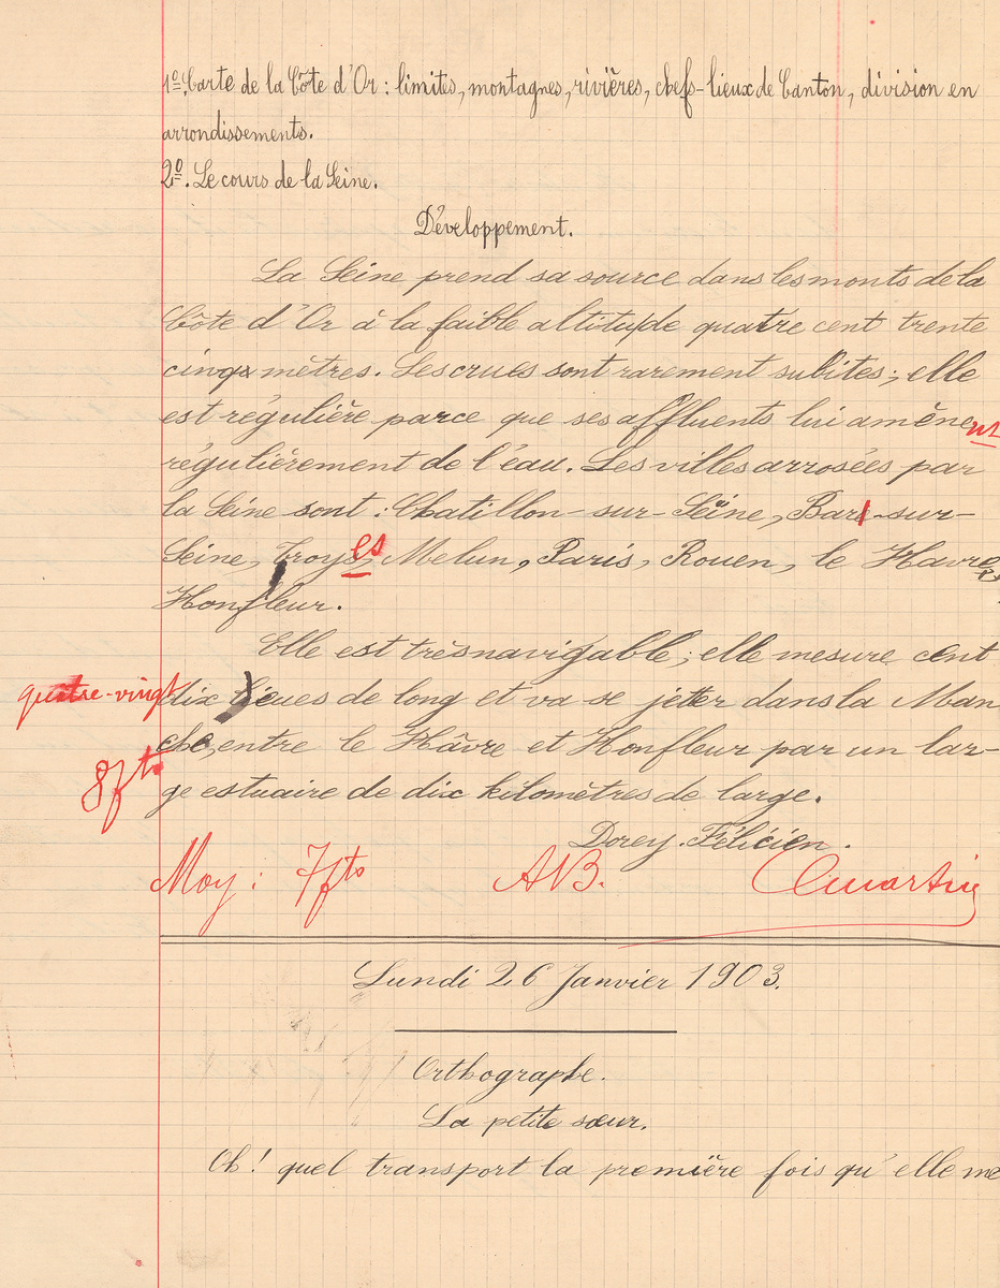 1º. Carte de la Côte d'Or : limites, montagnes, rivières, chefs-lieux de Canton, division en
arrondissements.
2º. Le cours de la Seine.
Développement.
La Seine prend sa source dans les monts de la
Côte d'Or à la faible altitude quatre cent trente
cinq mètres. Les crues sont rarement subites ; elle
est régulière parce que ses affluents lui amènent
régulièrement de l'eau. Les villes arrosées par
la Seine sont : Chatillon-sur-Seine, Bar-sur-
Seine, Troyes, Melun, Paris, Rouen, le Havre,
Honfleur.
Elle est très navigable ; elle mesure cent
quatre-vingt
dix lieues de long et va se jeter dans la Man
che, entre le Hâvre et Honfleur par un lar-
8pts
ge estuaire de dix kilomètres de large.
Dorey Félicien.
Moy : 7pts AB.
Lundi 26 Janvier 1903.
Orthographe.
La petite sœur.
Oh ! quel transport la première fois qu'elle me